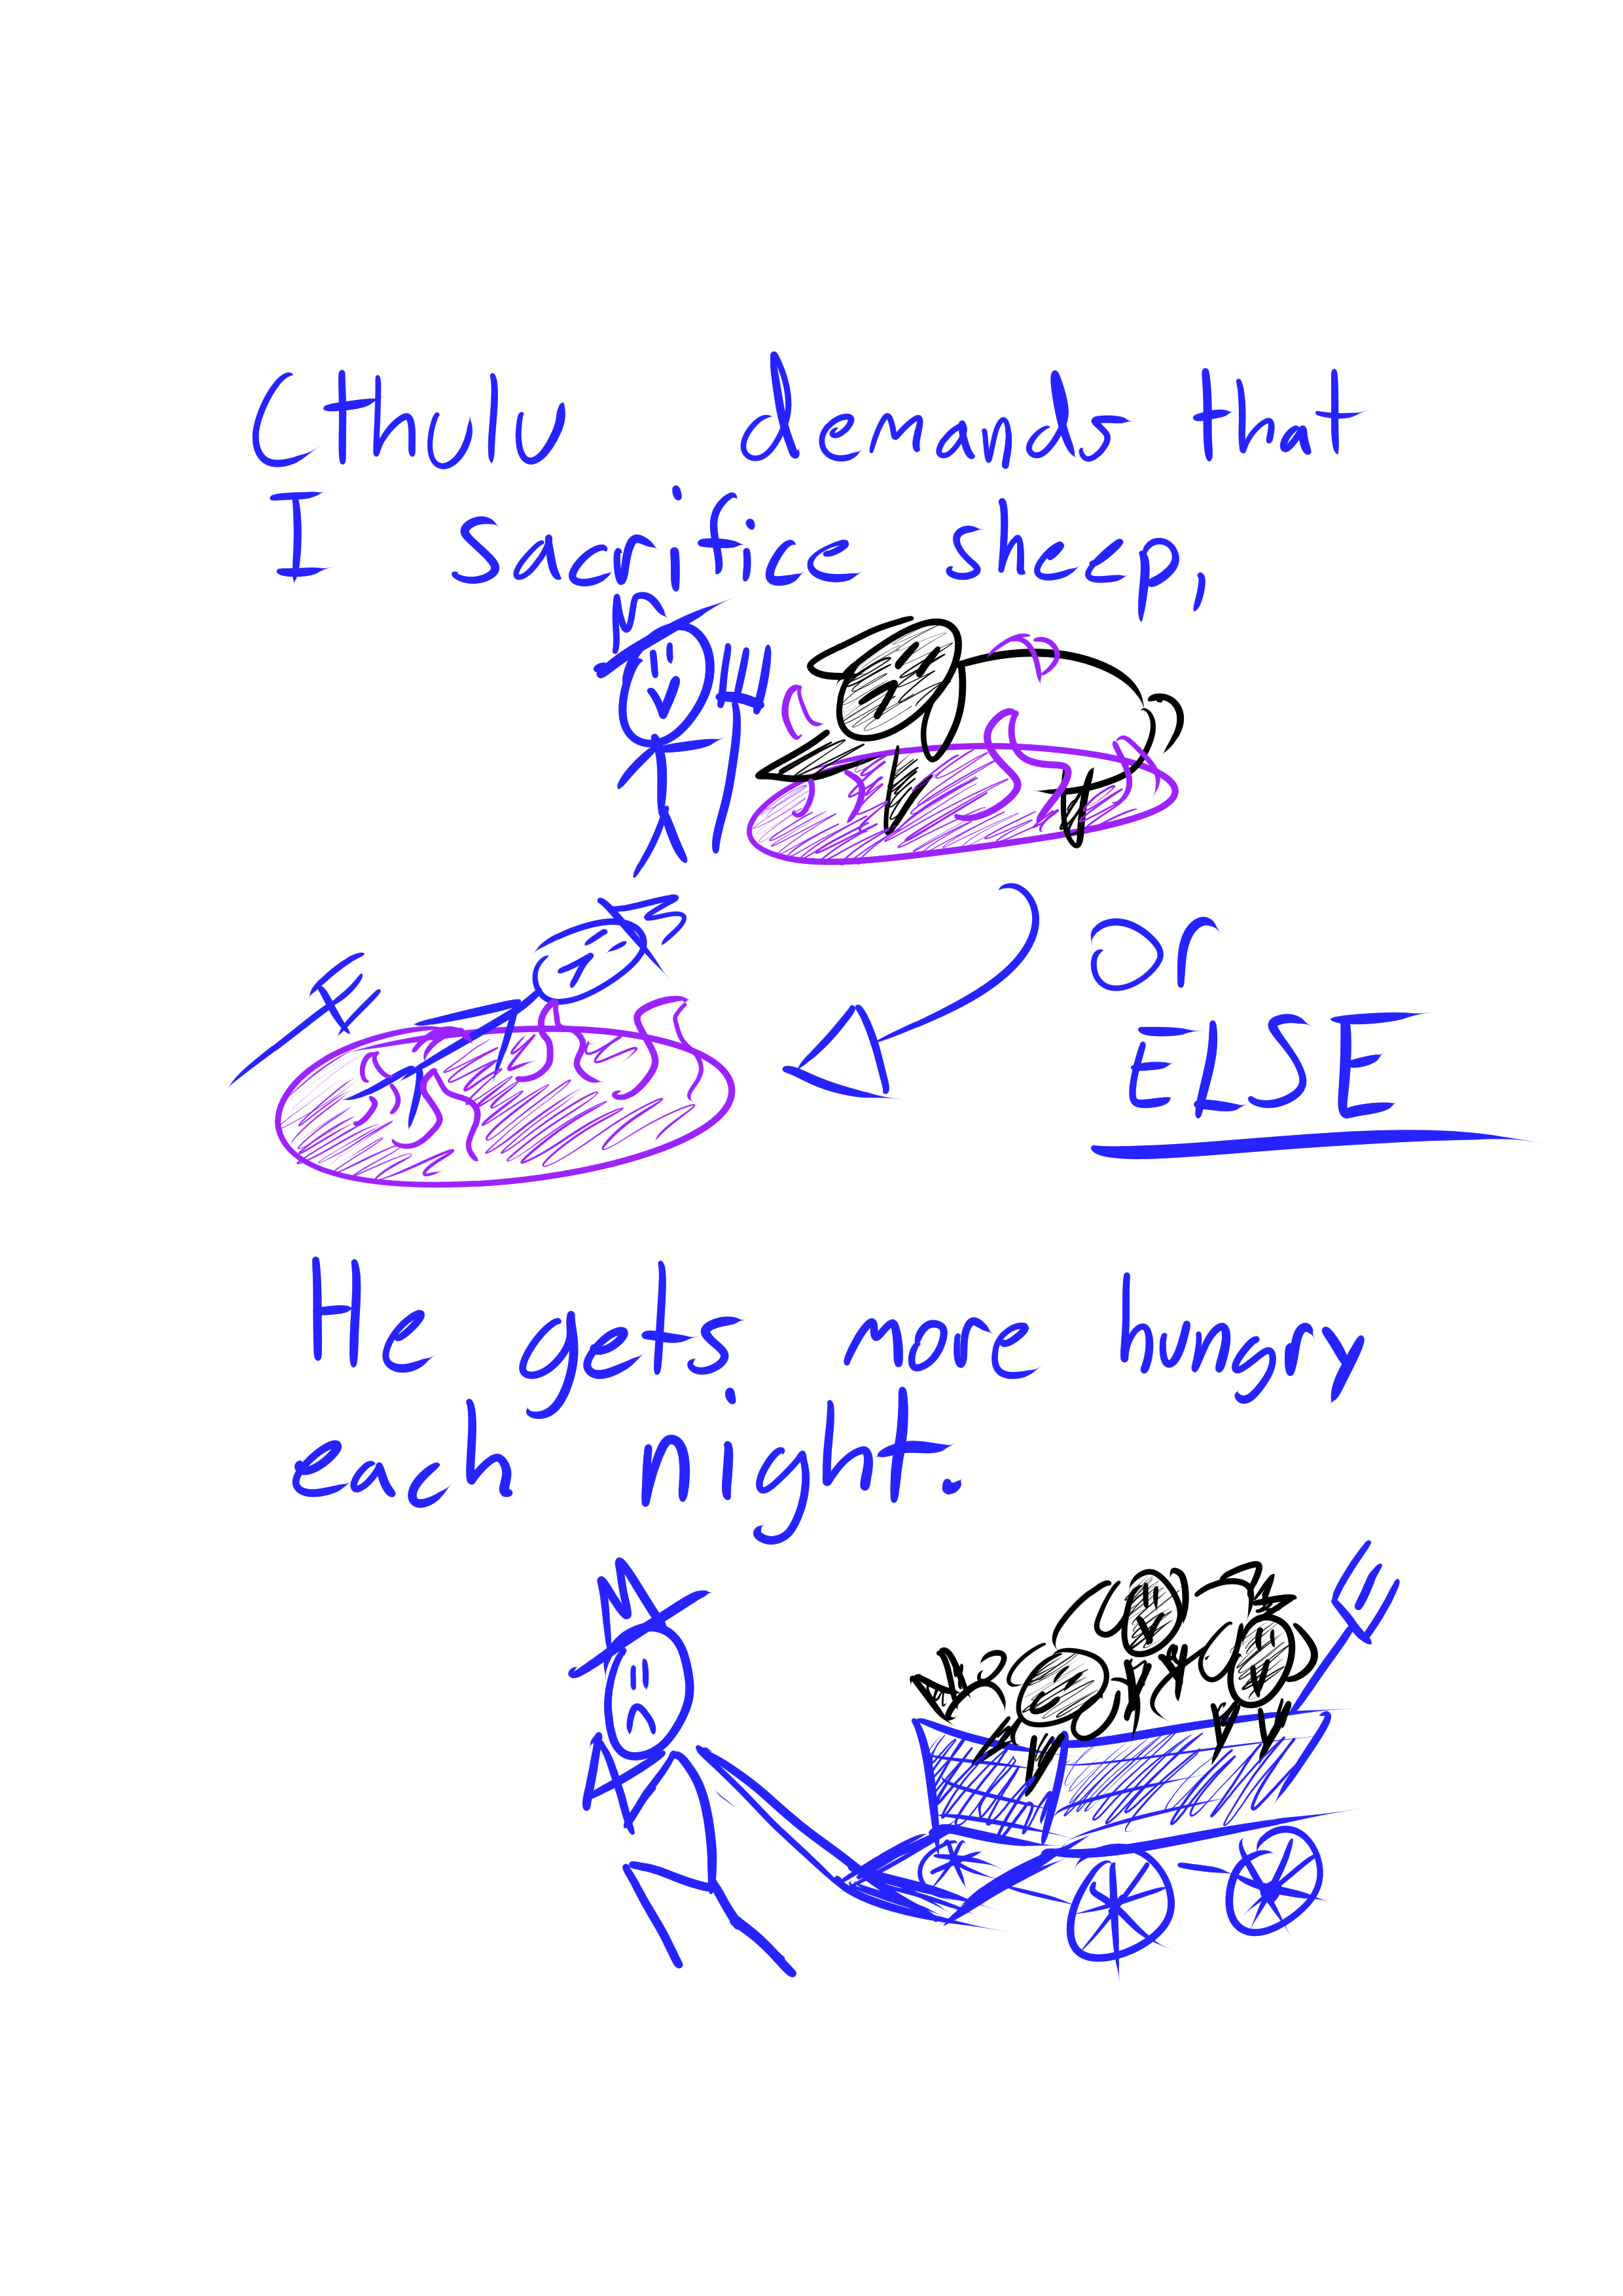 Cthulu demands that
I sacrifice sheep,
or
ELSE
He gets more hungry
each night.